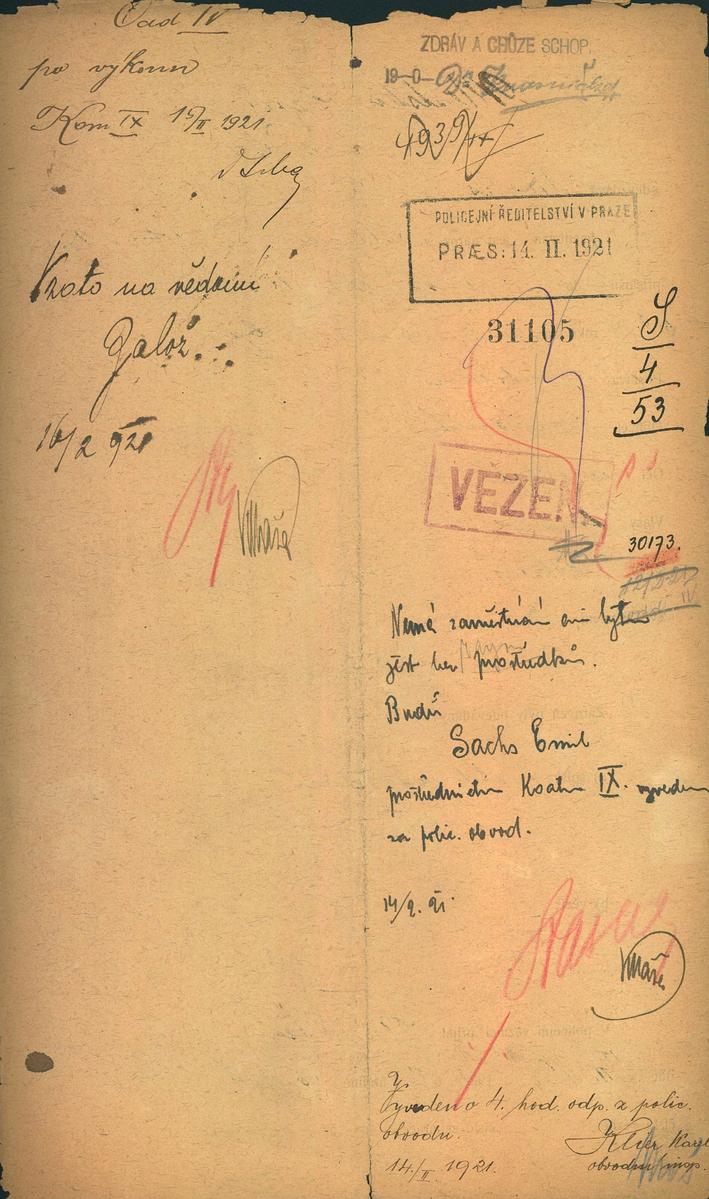 Odd IV
po výkonu
Kom IX 15/II 1921
Vzato na vědomí
Založ.
16/2 921
ZDRÁV A CHŮZE SCHOP.
19-0-
POLICEJNÍ ŘEDITELSTVÍ V PRAZE
PRÆS: 14. II. 1921
31105
S
4
53
VĚZEŇ
30173.
Nemá zaměstnání ani bytu
jest bez prostředků.
Budiž
Sachs Emil
prostřednictvím Koatu IX. vyveden
za polic. obvod.
14/2. 21.
Vyveden o 4. hod. odp. z polic.
obvodu.
14/II 1921.
obvodní insp.